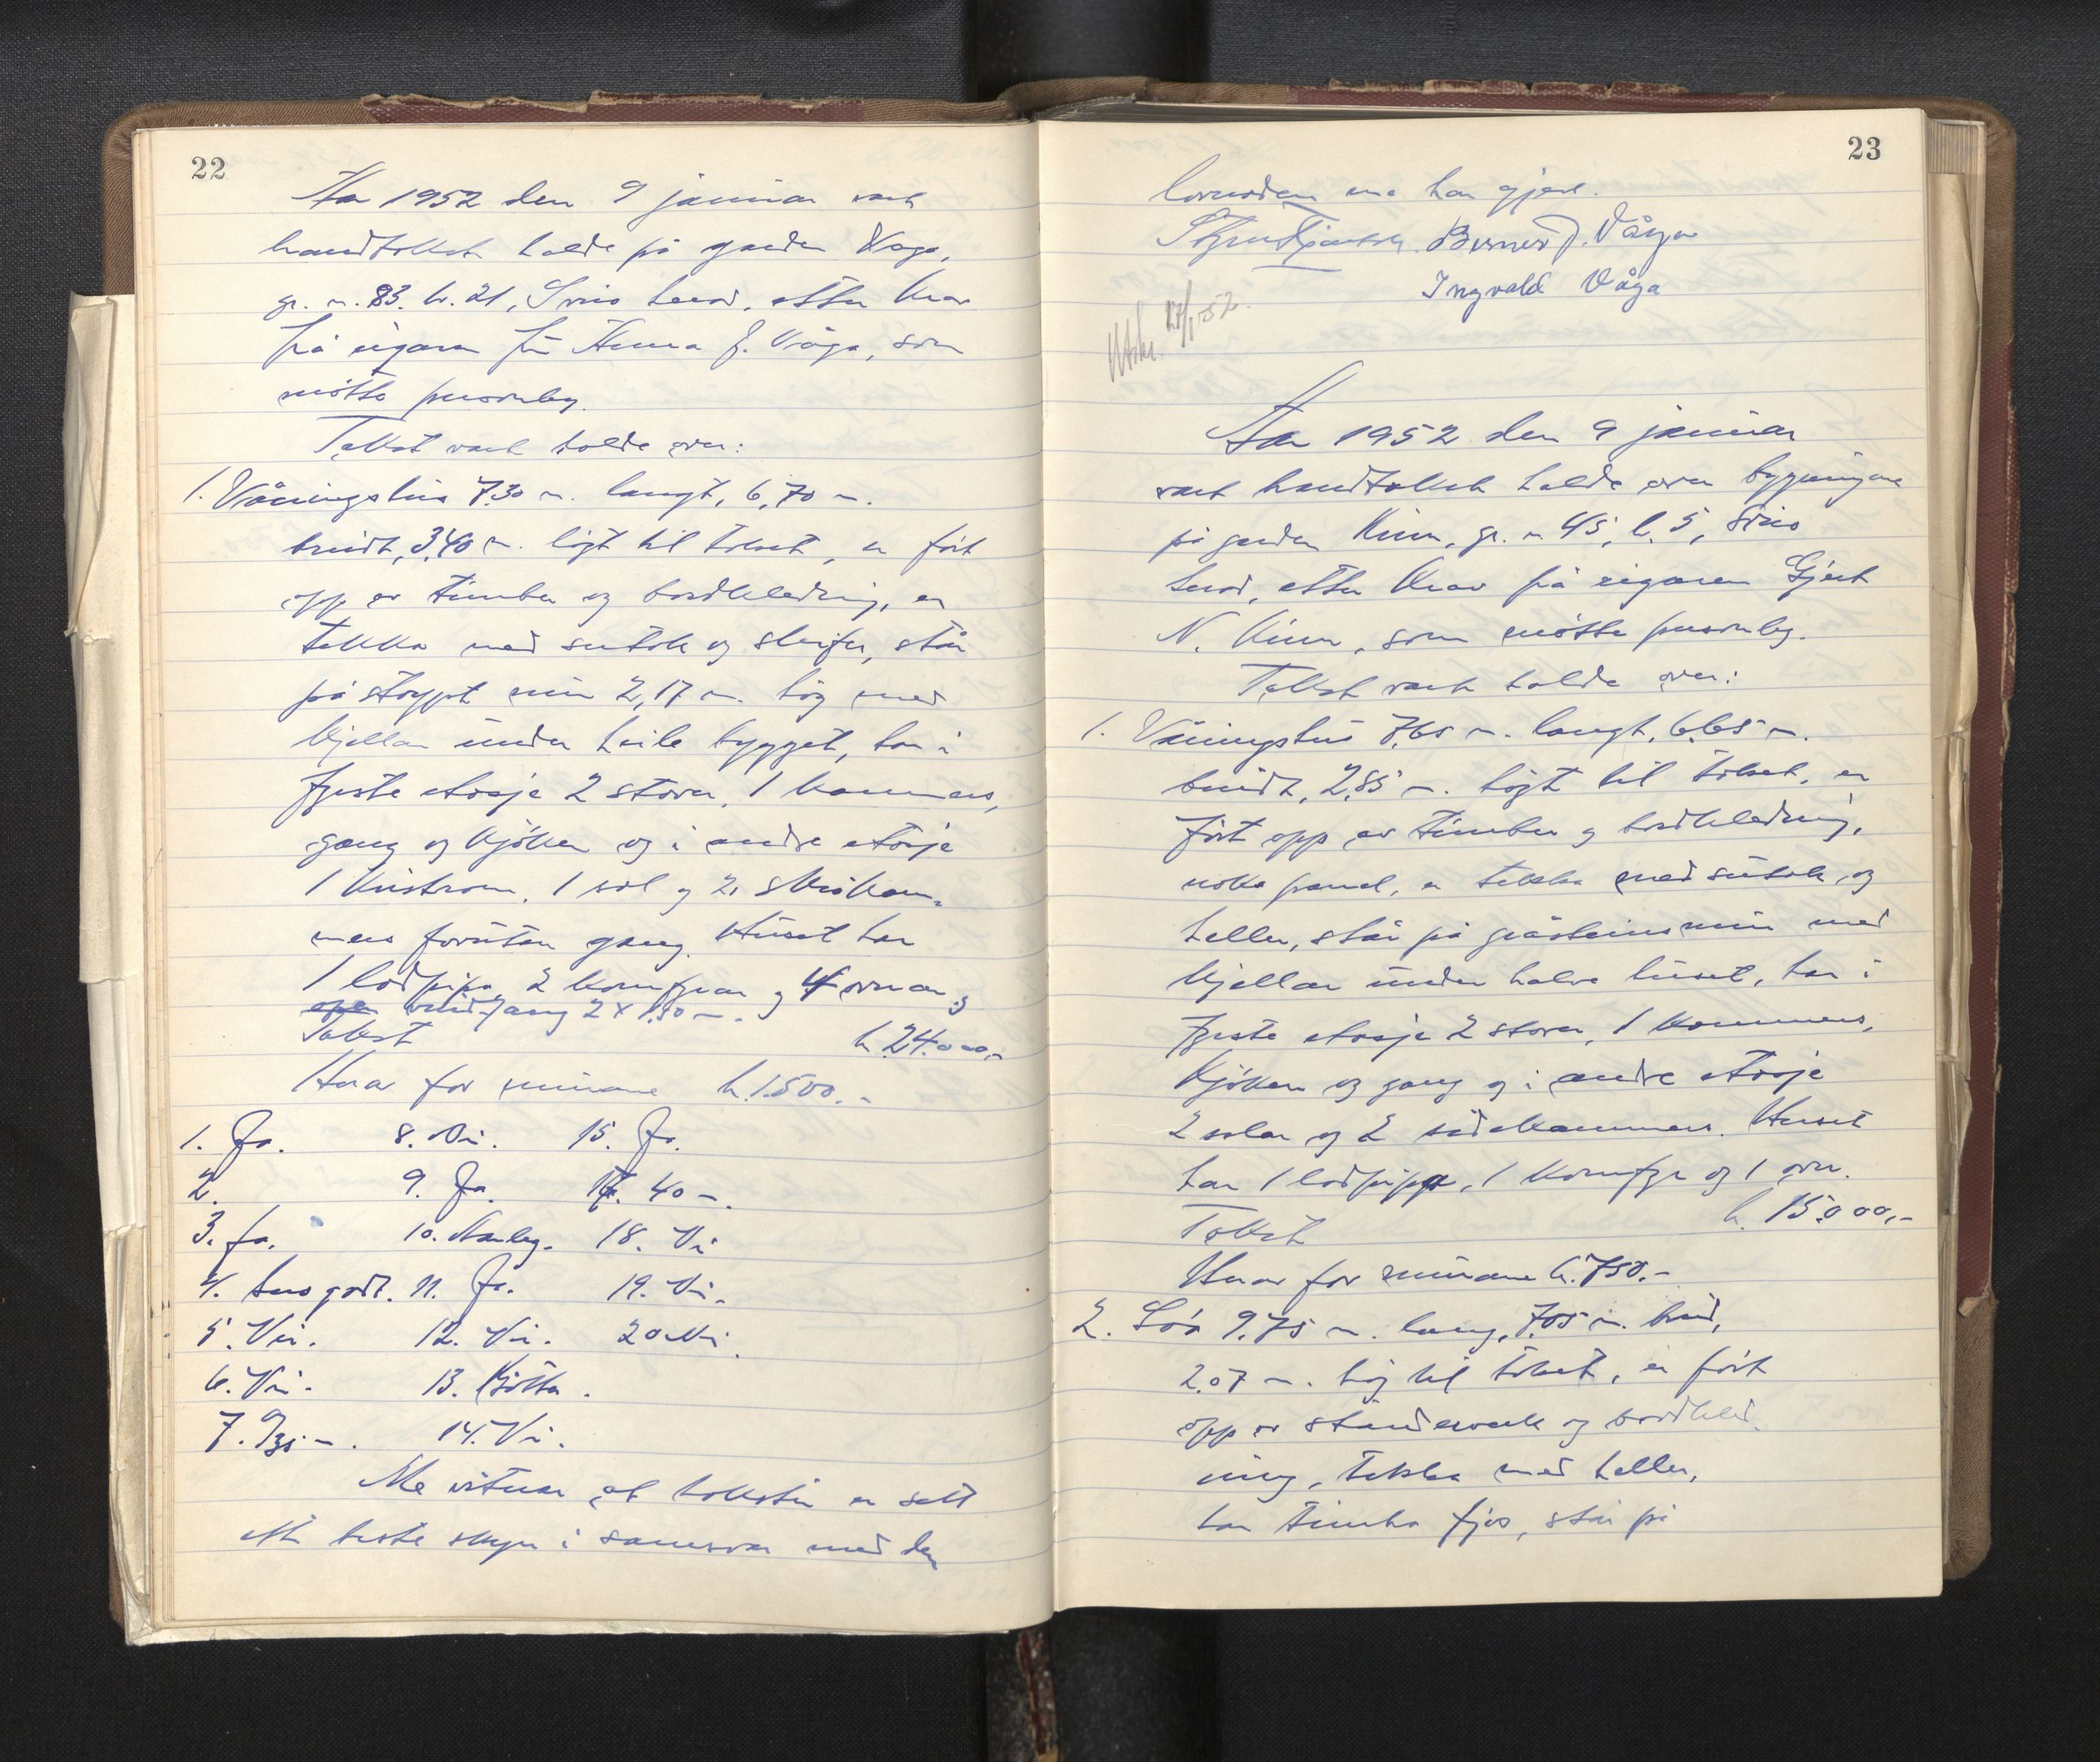 22
Aar 1952 den 9 januar vart
brandtakst halde på garden Vaga,
gr. n. 83. br. 21, Sveio herad, etter krav
frå eigaren frú Anna J. Våga, som
møtte personleg.
Takst vart halde over:
1. Våningshus 7.30 m. langt, 6,70 m.
breidt, 3,40 m. høgt til taket, er ført
opp av timber og bordkledning, er
tekka med sutak og skifer, står
på støypt mur 2,17 m. høg med
kjellar under heile bygget, har i
fyrste etasje 2 stover, 1 kammers,
gang og kjøken og i andre etasje
1 kvistrom, 1 sal og 2 skråkam-
mers forutan gang. Huset har
1 lodpipa, 2 komfyrar og 4 omnar og
vindfang 2 x 1.50 m.
Takst kr. 24.000,-
Herav for murane kr. 1.500.-
1. Ja. 8. Nei. 15. Ja.
2. 9. Ja. 17. 40 m.
3. Ja. 10. Vanleg. 18. Nei
4. Hus godt. 11. Ja. 19. Nei.
5. Nei. 12. Nei. 20 Nei.
6. Nei. 13. Bøtter.
7. 9/35 m. 14. Nei.
Me vitnar at taksten er sett
etter beste skyn i samsvar med den
23
lovnaden me har gjeve.
Berner J. Våga
Ingvald Våga
Utskr. 17/1-52.
Aar 1952 den 9 januar
vart brandtakst halde over bygningane
på garden Kinn, gr. n. 45, br. 5, Sveio
herad, etter krav frå eigaren Gjert
N. Kinn, som møtte personleg.
Takst vart halde over:
1. Våningshus 7,65 m. langt, 6,65 m.
breidt, 2,85 m. høgt til taket, er
ført opp av timber og bordkledning,
noko panel, er tekka med sutak og
heller, står på gråsteinsmur med
kjellar under halve huset, har i
fyrste etasje 2 stover, 1 kammers,
kjøken og gang og i andre etasje
2 salar og 2 sidekammers. Huset
har 1 lodpipa, 1 komfyr og 1 omn.
Takst kr. 15.000,-
Herav for murane kr. 750.-
2. Løa 9,75 m. lang, 7,05 m. breid,
2.07 m. høg til taket, er ført
opp av standerverk og bordkled-
ning, tekka med heller,
har timbra fjos, står på